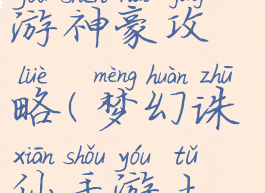 游神豪攻
lüè mèng huàn zhū
略(梦幻诛
xiān shǒu yóu tǔ
仙手游土